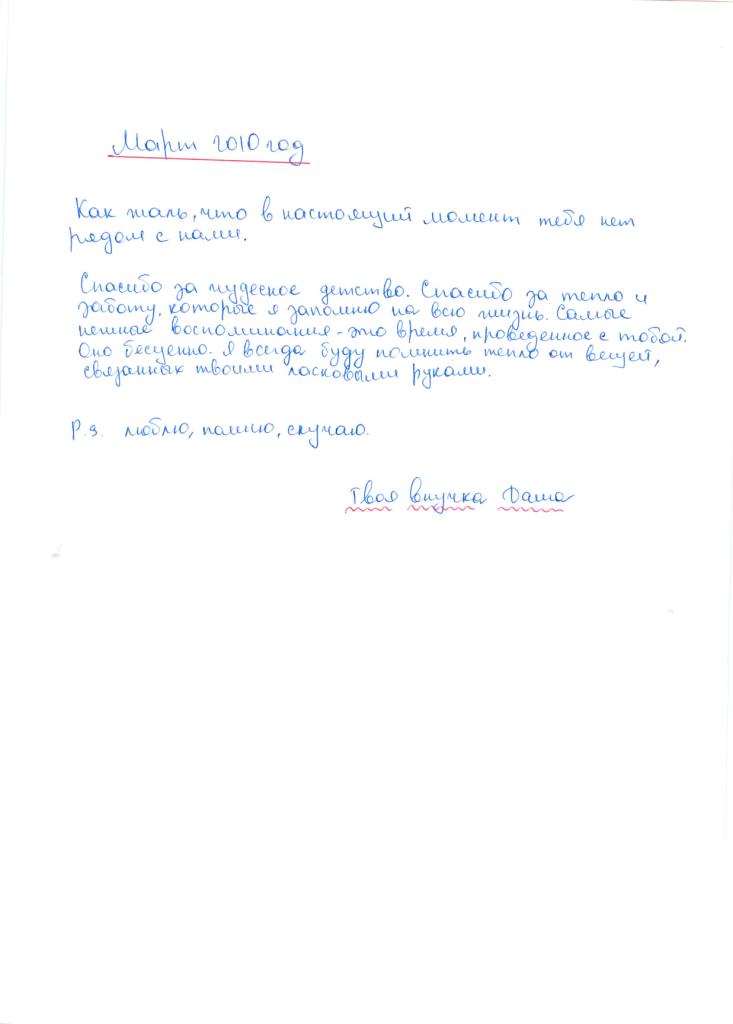 Март 2010 год
Как жаль, что в настоящий момент тебя нет
рядом с нами.
Спасибо за чудесное детство. Спасибо за тепло и
заботу, которые я запомню на всю жизнь. Самые
нежные воспоминания - это время, проведенное с тобой.
Оно бесценно. Я всегда буду помнить тепло от вещей,
связанных твоими ласковыми руками.
P.s. люблю, помню, скучаю.
Твоя внучка Даша